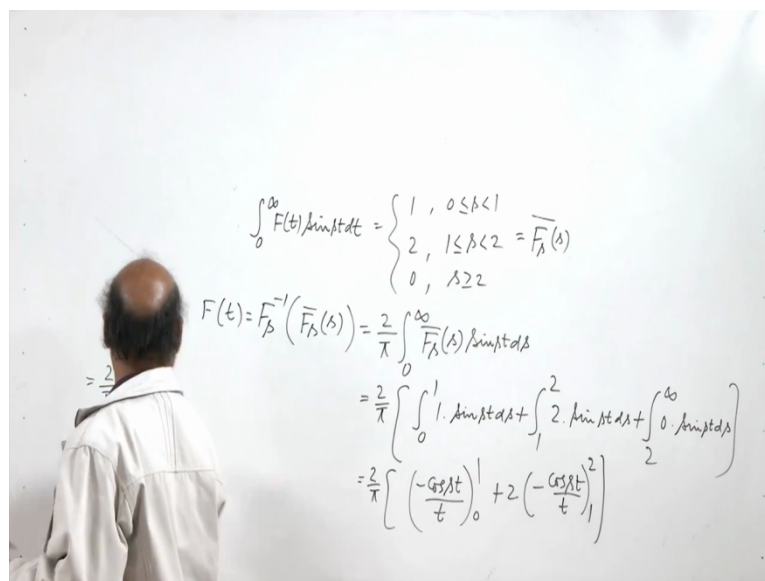 ∫₀^∞ F(t) sin st dt = { 1 , 0 ≤ s < 1
2 , 1 ≤ s < 2 = F̅ₛ(s)
0 , s ≥ 2
F(t) = Fₛ⁻¹(F̅ₛ(s)) = 2/π ∫₀^∞ F̅ₛ(s) sin st ds
= 2/π [ ∫₀¹ 1. sin st ds + ∫₁² 2. sin st ds + ∫₂^∞ 0. sin st ds ]
= 2/π [ (-cos st/t)₀¹ + 2 (-cos st/t)₁² ]
= 2